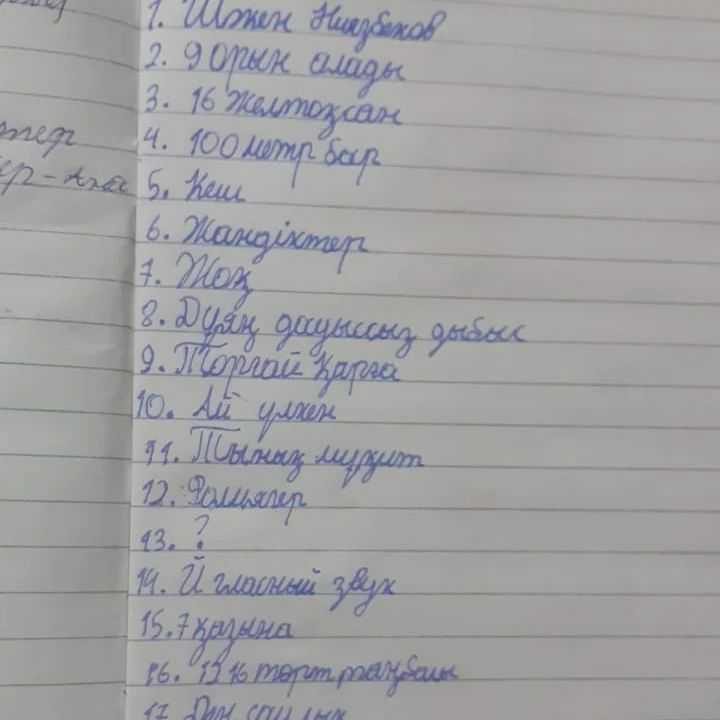 1. Шәкен Ниязбеков
2. 9 орын алады
3. 16 Желтоқсан
4. 100 метр бар
5. Кеш
6. Жәндіктер
7. Жоқ
8. Дуяң дауыссыз дыбыс
9. Торғай Қарға
10. Ай үлкен
11. Тынық мұқит
12.
13. ?
14. Й гласный звук
15. 7 қазына
16. төрт таңбалы
17.